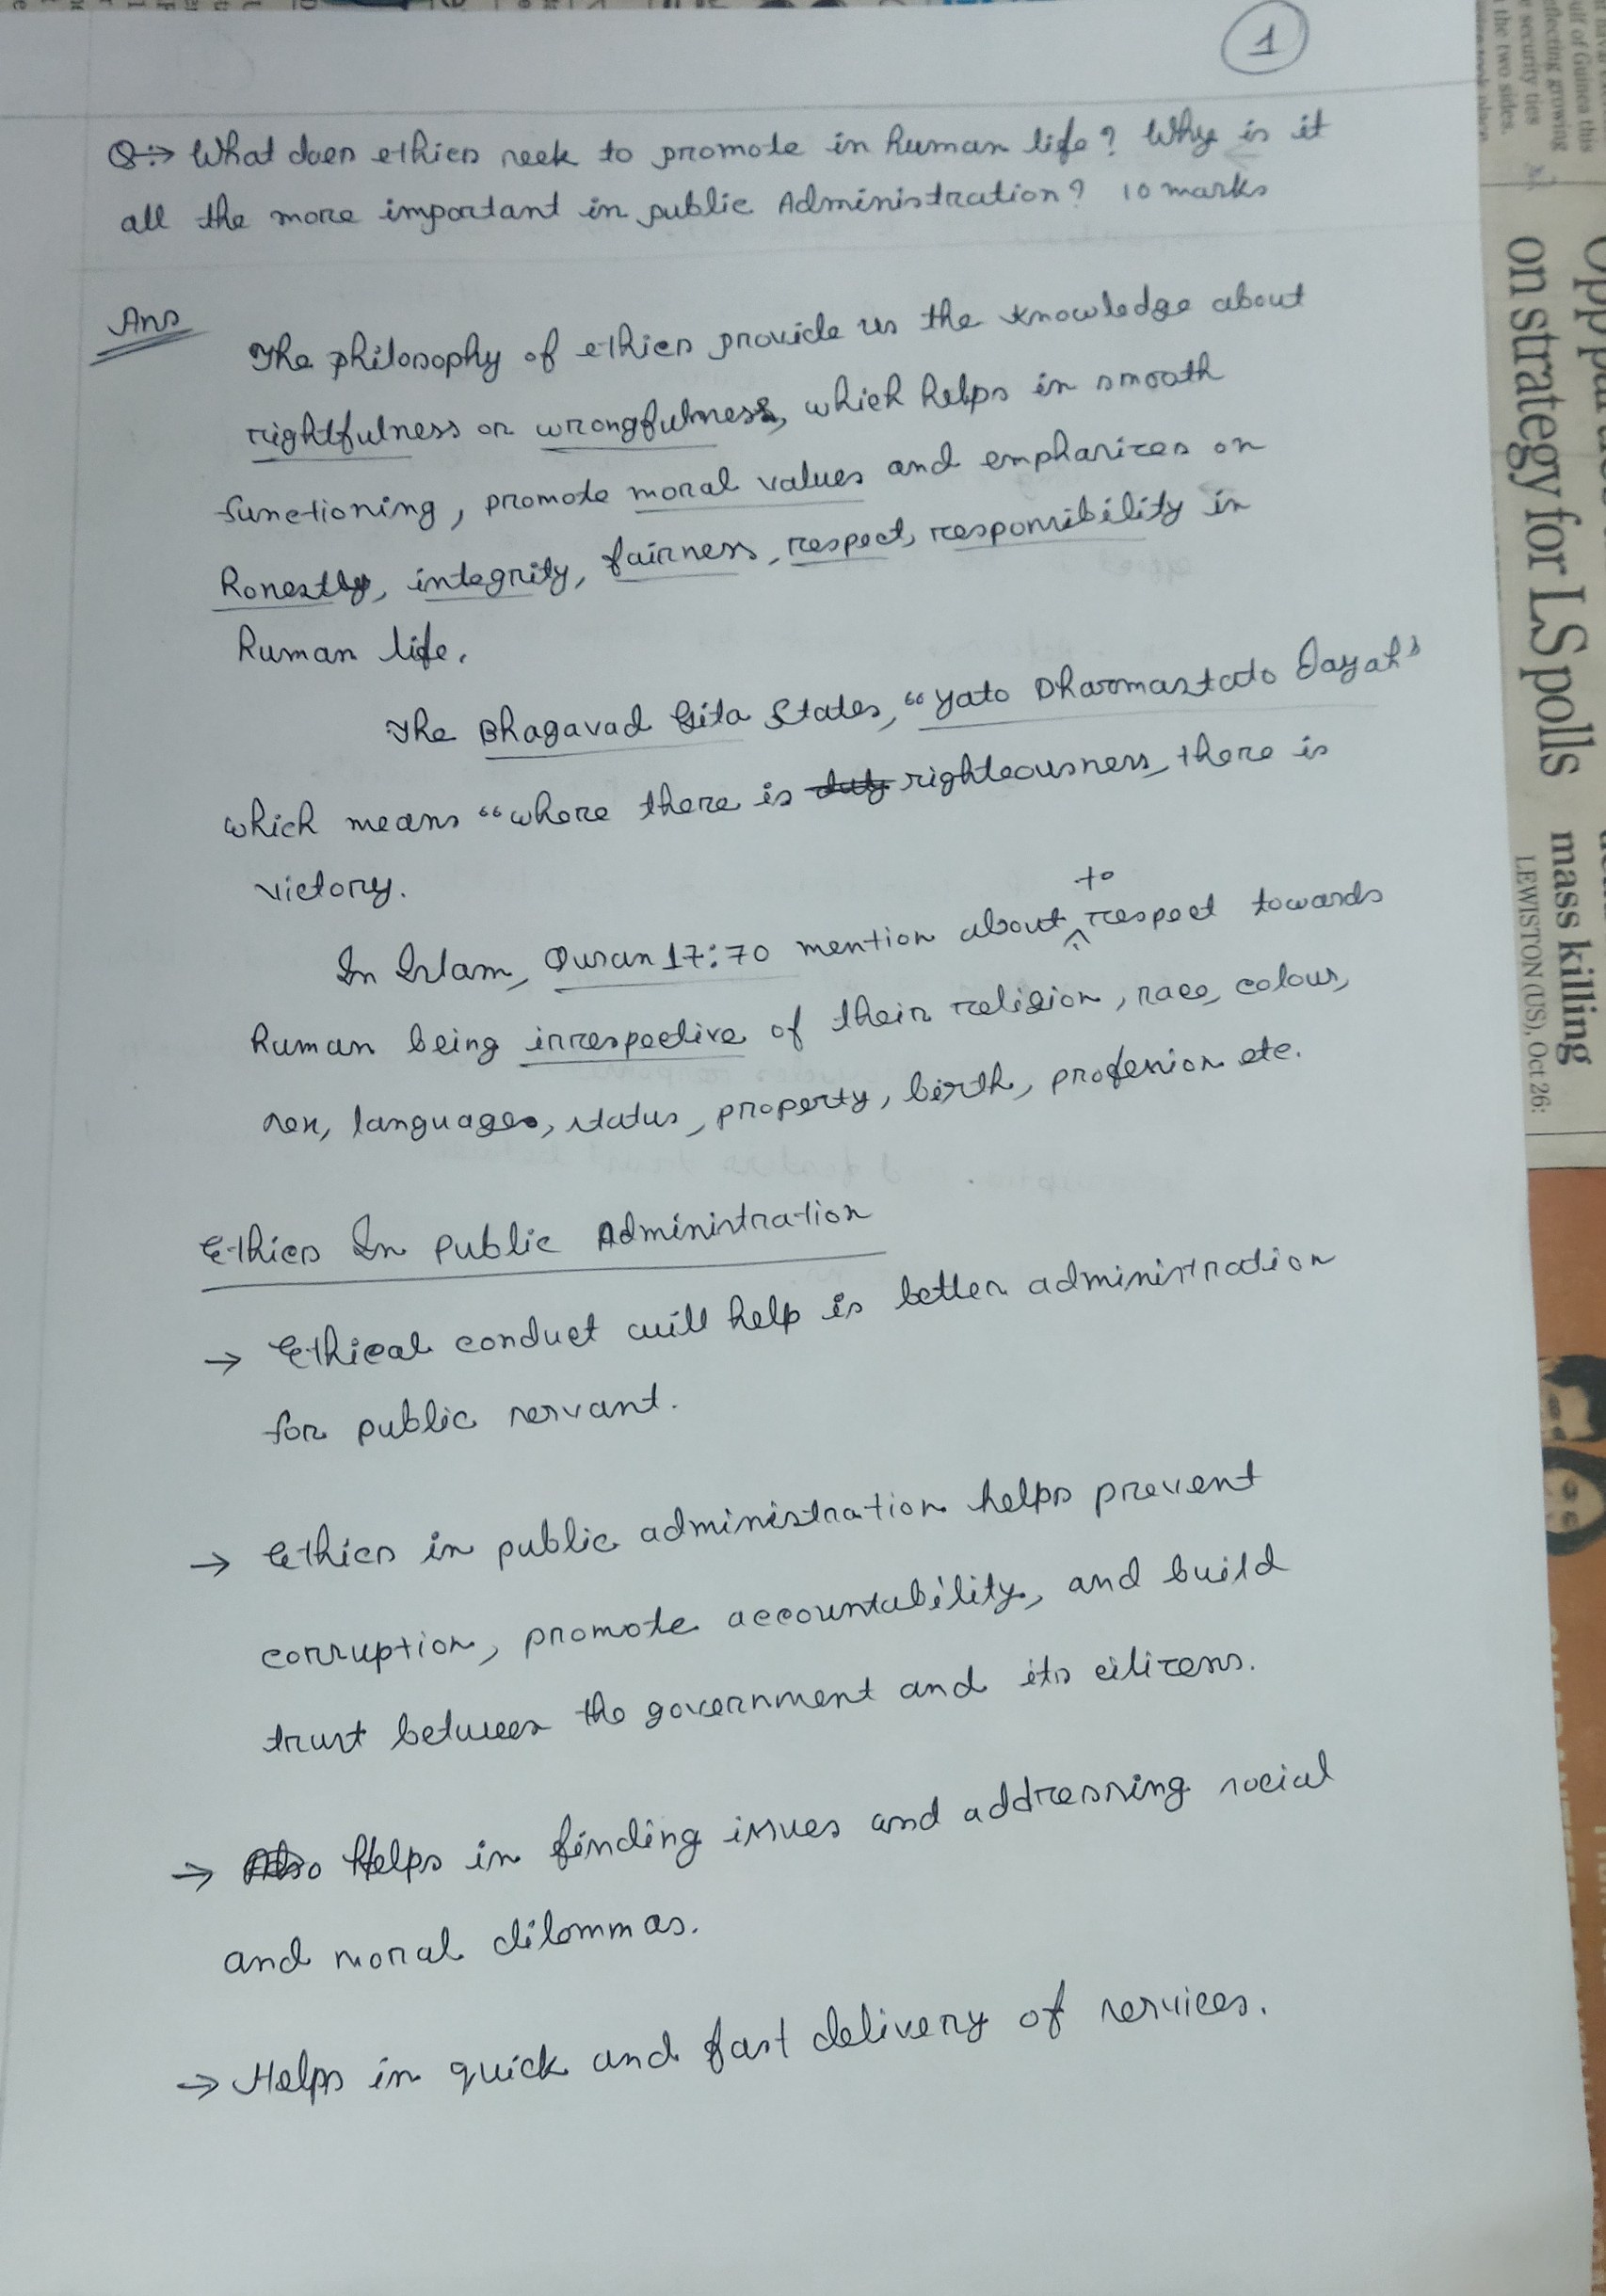 1
Q:→ What does ethics seek to promote in human life? Why is it
all the more important in public Administration? 10 marks
Ans
The philosophy of ethics provide us the knowledge about
rightfulness or wrongfulness, which helps in smooth
functioning, promote moral values and emphasizes on
honestly, integrity, fairness, respect, responsibility in
human life.
The Bhagavad Gita States, "Yato Dharmastato Jayah"
which means "where there is duty righteousness, there is
victory.
to
In Islam, Quran 17:70 mention about ^ respect towards
human being irrespective of their religion, race, colour,
sex, languages, status, property, birth, profession etc.
Ethics In Public Administration
→ Ethical conduct will help is better administration
for public servant.
→ Ethics in public administration helps prevent
corruption, promote accountability, and build
trust between the government and its citizens.
→ Also Helps in finding issues and addressing social
and moral dilommas.
→ Helps in quick and fast delivery of services.
the two sides.
security ties
eflecting growing
ulf of Guinea this
on strategy for LS polls
mass killing
LEWISTON (US), Oct 26: